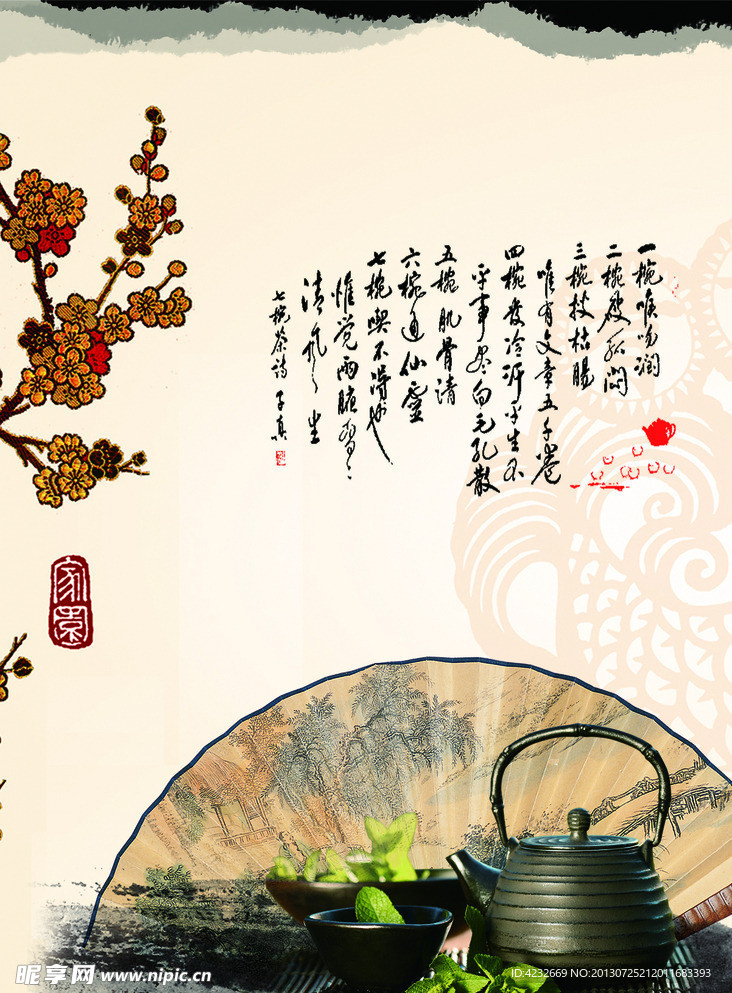 一碗喉吻润
二碗破孤闷
三碗搜枯肠
唯有文章五千卷
四碗发轻汗平生不
平事尽向毛孔散
五碗肌骨清
六碗通仙灵
七碗喫不得也
惟觉两腋習習
清风生
七碗茶诗
家園
昵享网 www.nipic.cn
ID:4232669 NO:20130725212011683393